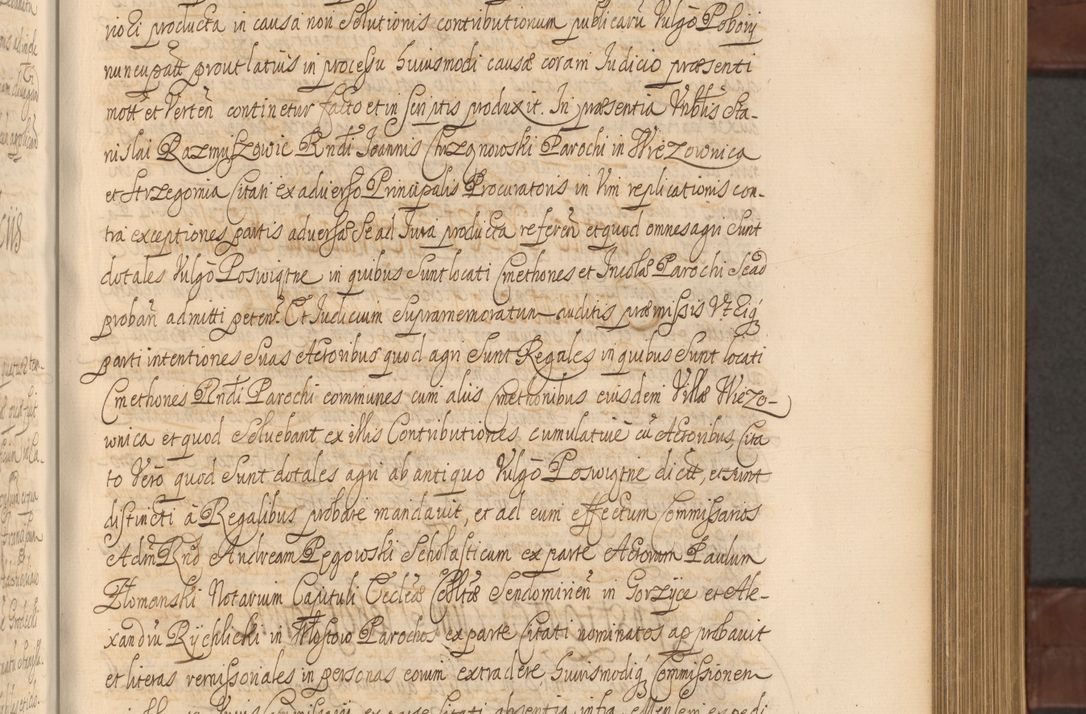 riori producta in causa non Solutionis contributionum publicarũ Vulgo Pobory
nuncupatt prout latius in processu huiusmodi causæ coram Iudicio præsenti
mott et Verteñ continetur facto et in scriptis produxit. In præsentia Nobilis Sta-
nislai Razmyszowic Rndi Joannis Chrzęnowski Parochi in Wiezownica
et Strzegomia Citati ex adverso Principalis Procuratoris in Vim replicationis con-
tra exceptiones partis adversæ se ad Iura producta refereñ et quod omnes agri sunt
dotales Vulgo Poswigtne in quibus sunt locati Cmethones et Incolæ Parochi sead
probañ admitti petent. Et Iudicium supramemoratum auditis præmissis Vtriq
parti intentiones suas Actoribus quod agri sunt Regales in quibus sunt locati
Cmethones Rndi Parochi communes cum aliis Cmethonibus eiusdem Villæ Wiezo-
wnica et quod soluebant ex illis Contributiones cumulative cũ Actoribus, Cita
to Verò quod sunt dotales agri ab antiquo Vulgo Poswigtne dictt, et sunt
distincti à Regalibus probare mandauit, et ad eum effectum Commissarios
Adm Rnd Andream Pęgowski Scholasticum ex parte Actorum Paulum
Złomanski Notarium Capituli Ecclesiæ Collttæ Sendomirieñ in Gorzyce et Ale-
xandrũ Rychlicki in Mostowo Parochos ex parte Citati nominatos approbauit
et literas remissoriales in personas eorum extradere huiusmodiq Commissionem